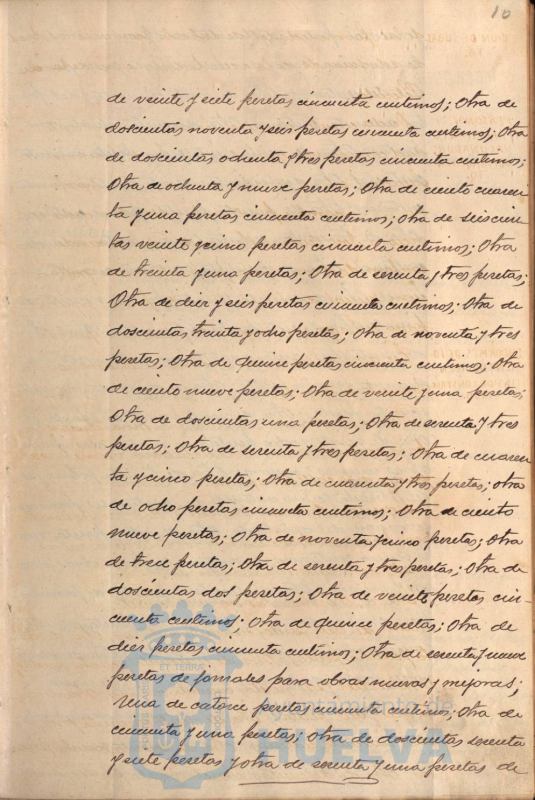 10
de veinte y siete pesetas cincuenta centimos; Otra de
doscientas noventa y seis pesetas cincuenta centimos; Otra
de doscientas ochenta y tres pesetas cincuenta centimos;
Otra de ochenta y nueve pesetas; Otra de ciento cuaren-
ta y una pesetas cincuenta centimos; Otra de seiscien-
tas veinte y cinco pesetas cincuenta centimos; Otra
de treinta y una pesetas; Otra de serenta y tres pesetas;
Otra de diez y seis pesetas cincuenta centimos; Otra de
doscientas treinta y ocho pesetas; Otra de noventa y tres
pesetas; Otra de quince pesetas cincuenta centimos; Otra
de ciento nueve pesetas; Otra de veinte y una pesetas;
Otra de doscientas una pesetas; Otra de serenta y tres
pesetas; Otra de serenta y tres pesetas; Otra de cuaren-
ta y cinco pesetas; Otra de cuarenta y tres pesetas; otra
de ocho pesetas cincuenta centimos; Otra de ciento
nueve pesetas; Otra de noventa y cinco pesetas; Otra
de trece pesetas; Otra de serenta y tres pesetas; Otra de
doscientas dos pesetas; Otra de veinte pesetas cin-
cuenta centimos; Otra de quince pesetas; Otra de
diez pesetas cincuenta centimos; Otra de serenta y nueve
pesetas de jornales para obras nuevas y mejoras;
Una de catorce pesetas cincuenta centimos; Otra de
cincuenta y una pesetas; Otra de doscientas serenta
y siete pesetas y otra de serenta y una pesetas de
ET TERRA
Ayuntamiento de
HUELVA